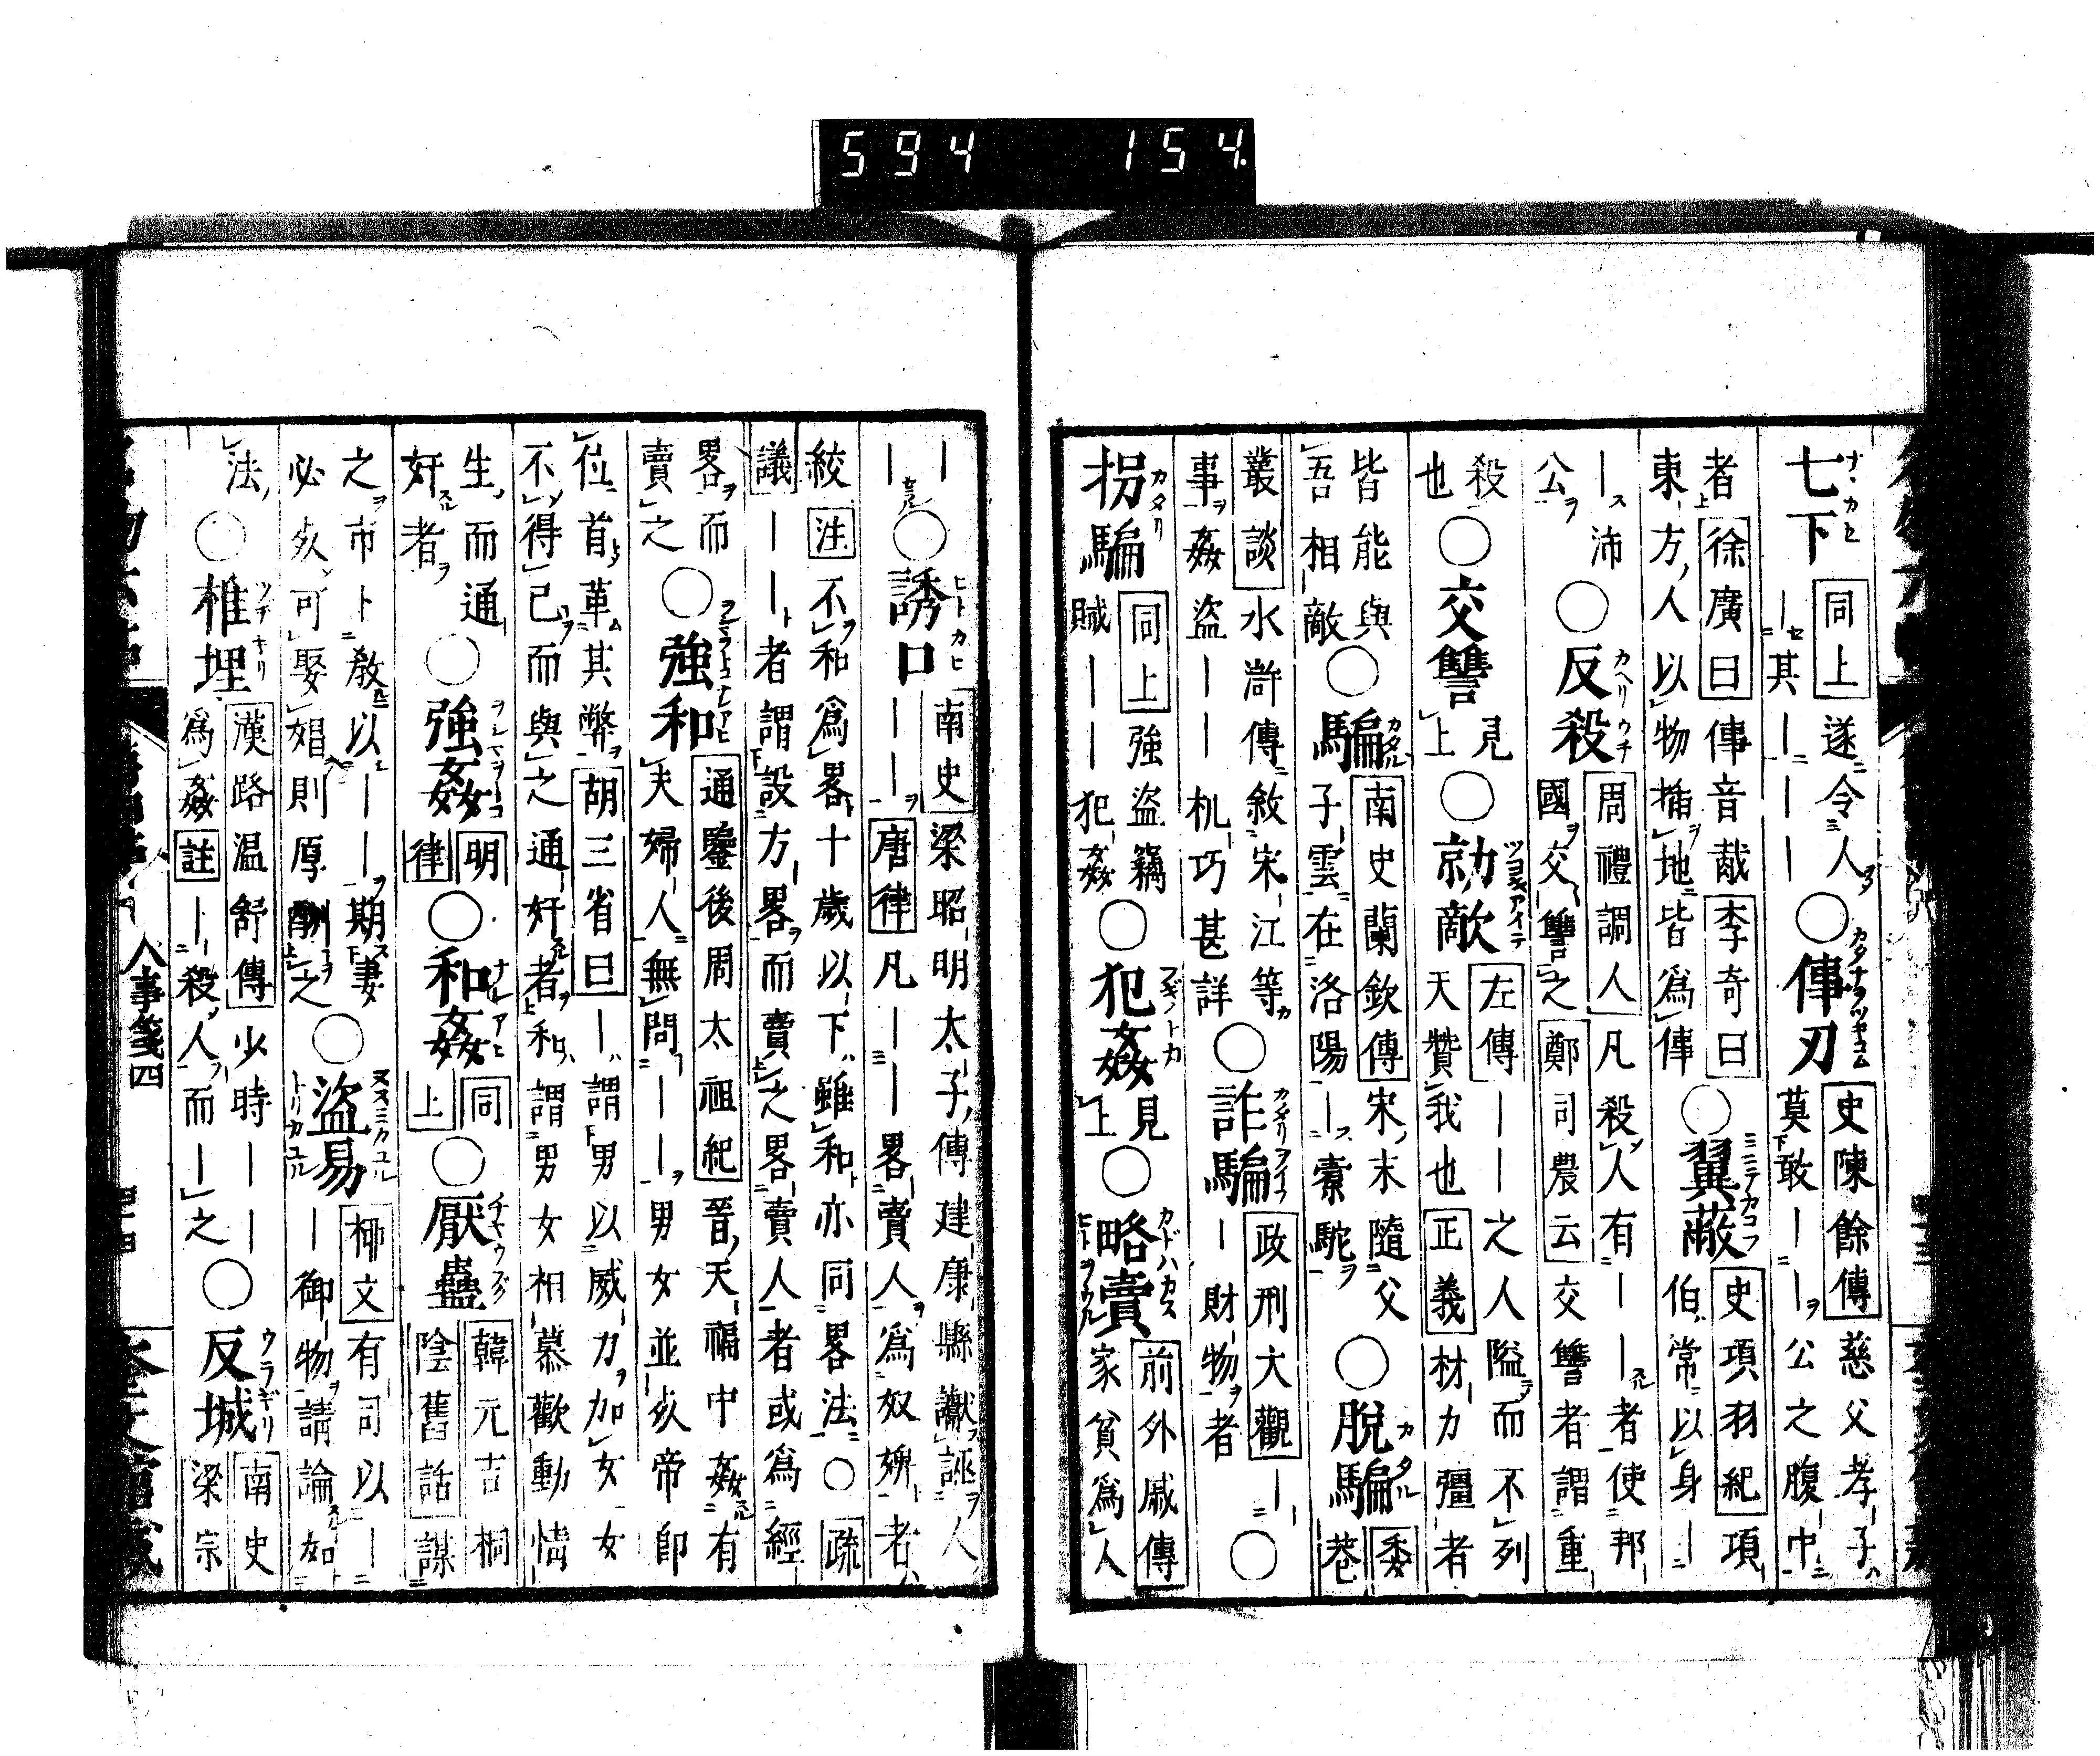 七下
同上遂令人
｜其｜｜｜
○倳刃
史陳餘傳慈父孝子
莫敢｜｜公之腹中
者徐廣曰倳音胾李奇曰
東方人以物揷地皆爲倳
○翼蔽
史項羽紀項
伯常以身｜
｜沛
公
○反殺
周禮調人凡殺人有｜｜者使邦
國交讐之鄭司農云交讐者謂重
殺
也
○交讐
見
上
○勍敵
左傳｜｜之人隘而不列
天贊我也正義材力彊者
皆能與
吾相敵
○騙
南史蘭欽傳宋末隨父
子雲在洛陽｜橐駝
○脫騙
委
巷
叢談水滸傳敘宋江等
事姦盜｜｜机巧甚詳
○詐騙
政刑大觀｜
｜財物者
○
拐騙
同上強盜竊
賊｜｜犯姦
○犯姦
見
上
○略賣
前外戚傳
家貧爲人
｜
｜
○誘口
南史梁昭明太子傳建康縣讞誣人
｜｜｜唐律凡｜｜畧賣人爲奴婢者
絞注不和爲畧十歲以下雖和亦同畧法○疏
議｜｜者謂設方畧而賣之畧賣人者或爲經
畧而
賣之
○強和
通鑒後周太祖紀晉天福中姦有
夫婦人無問｜｜男女並死帝即
位首革其幣胡三省曰｜謂男以威力加女女
不得已而與之通奸者和謂男女相慕歡動情
生而通
奸者
○強姦
明
律
○和姦
同
上
○厭蠱
韓元吉桐
陰舊話謀
之市卜教以｜｜期妻
必死可娶娼則厚酬之
○盜易
柳文有司以｜
｜御物請論如
法
○椎埋
漢路温舒傳少時｜｜
爲姦註｜｜殺人而｜之
○反城
南史
梁宗
人事箋四
594 154